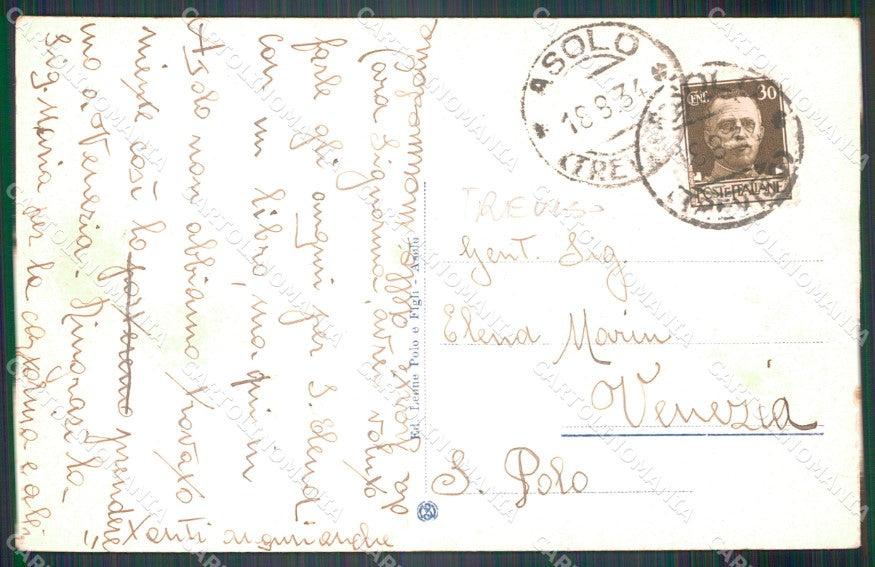 Cara Signorina, avrei voluto
farle gli auguri per S. Elena
con un libro, ma qui in
Asolo non abbiamo trovato
niente così lo prendere
mo a Venezia. Ringrazi la
Sig. Maria per la cartolina e
tanti auguri anche
da parte della mamma
Ed. Leone Polo e Figli - Asolo
ASOLO
18.8.34
(TREV
CENT. 30
POSTE ITALIANE
TREVISO
Gent. Sig.
Elena Marin
Venezia
S. Polo
CARTOLINOMANIA